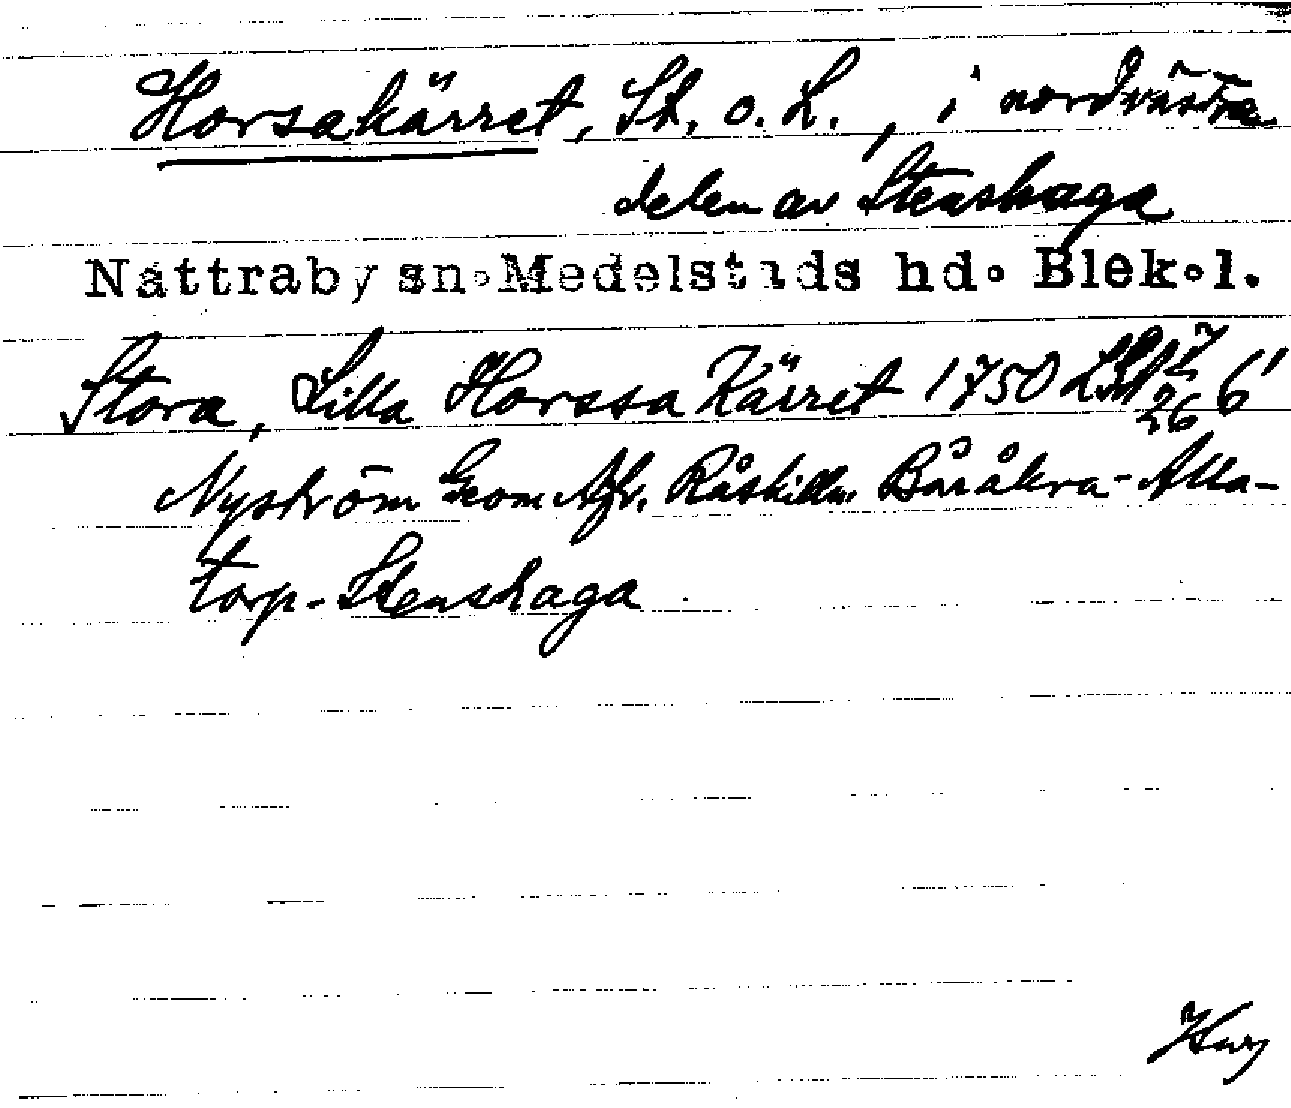 Horsakärret, St. o. L., i nordvästra
delen av Stenshaga
Nättraby sn. Medelstads hd. Blek. l.
Stora, Lilla Horssa Kärret 1750 6'
Nyström Geom Afr. Råskilln. Båråkra-Alla-
torp-Stenshaga